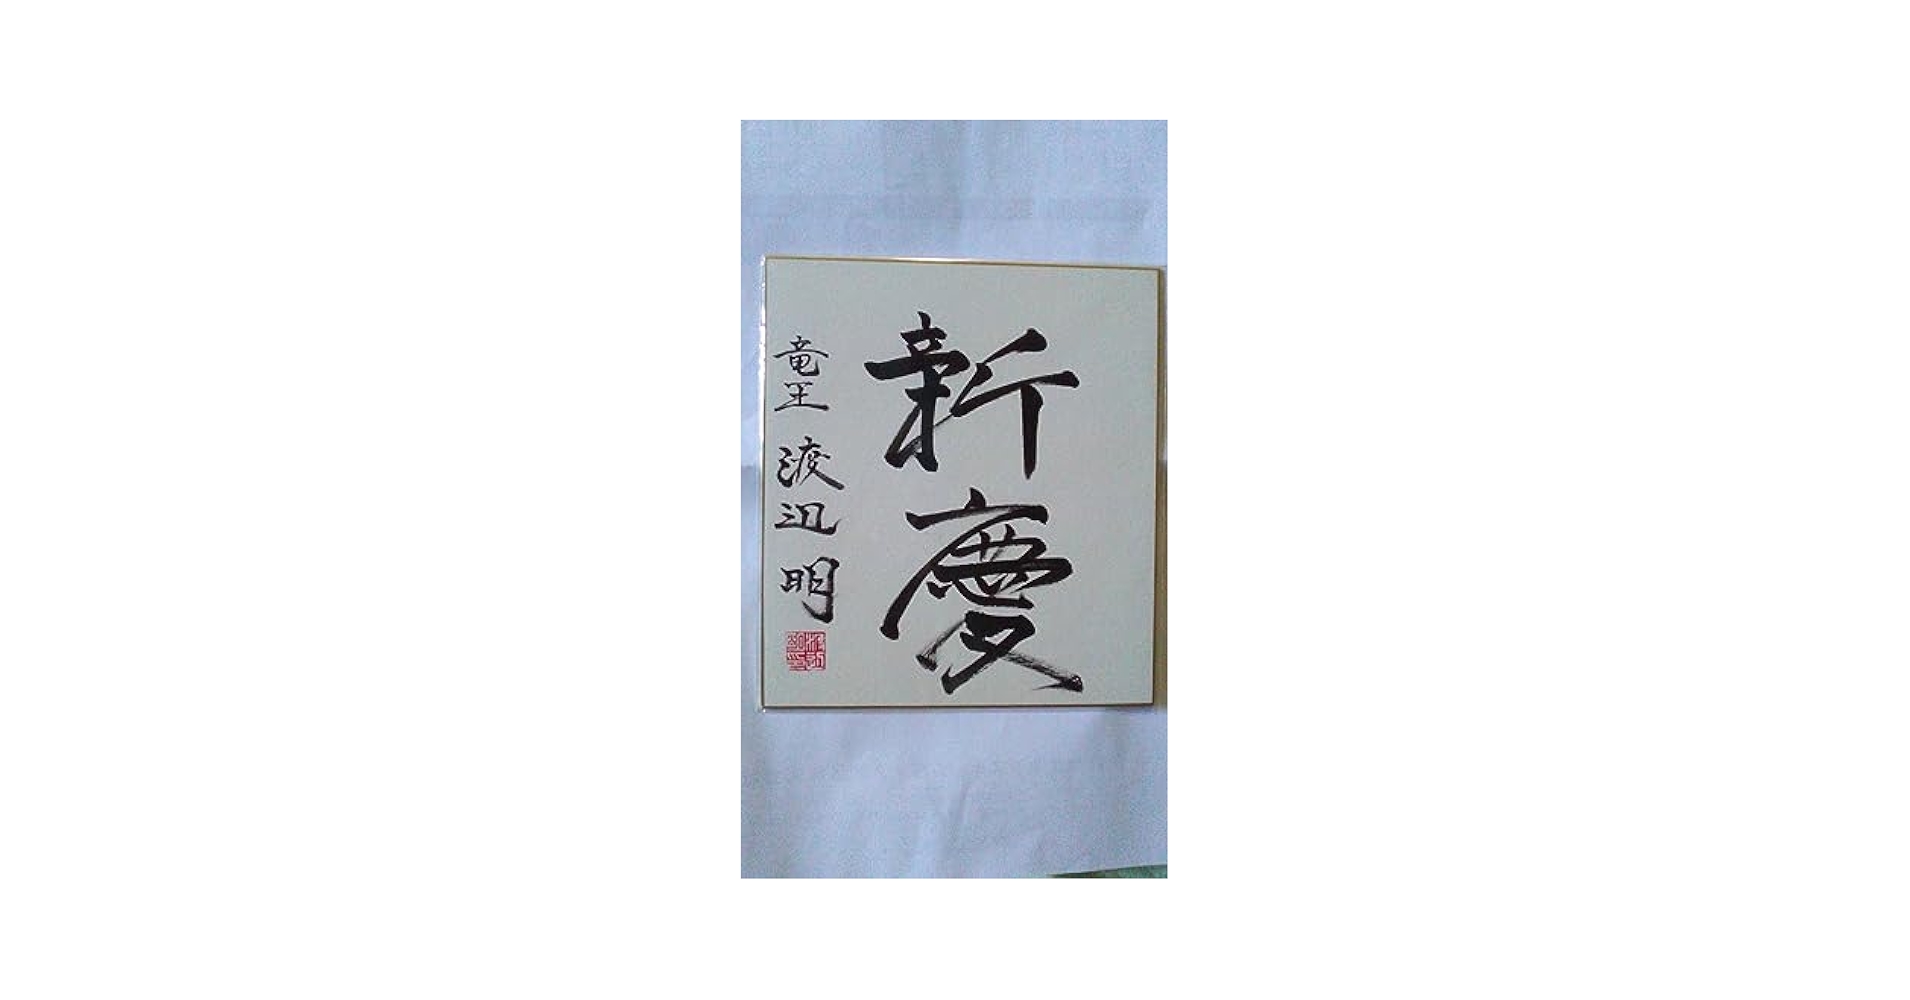 新慶
竜王 渡辺明